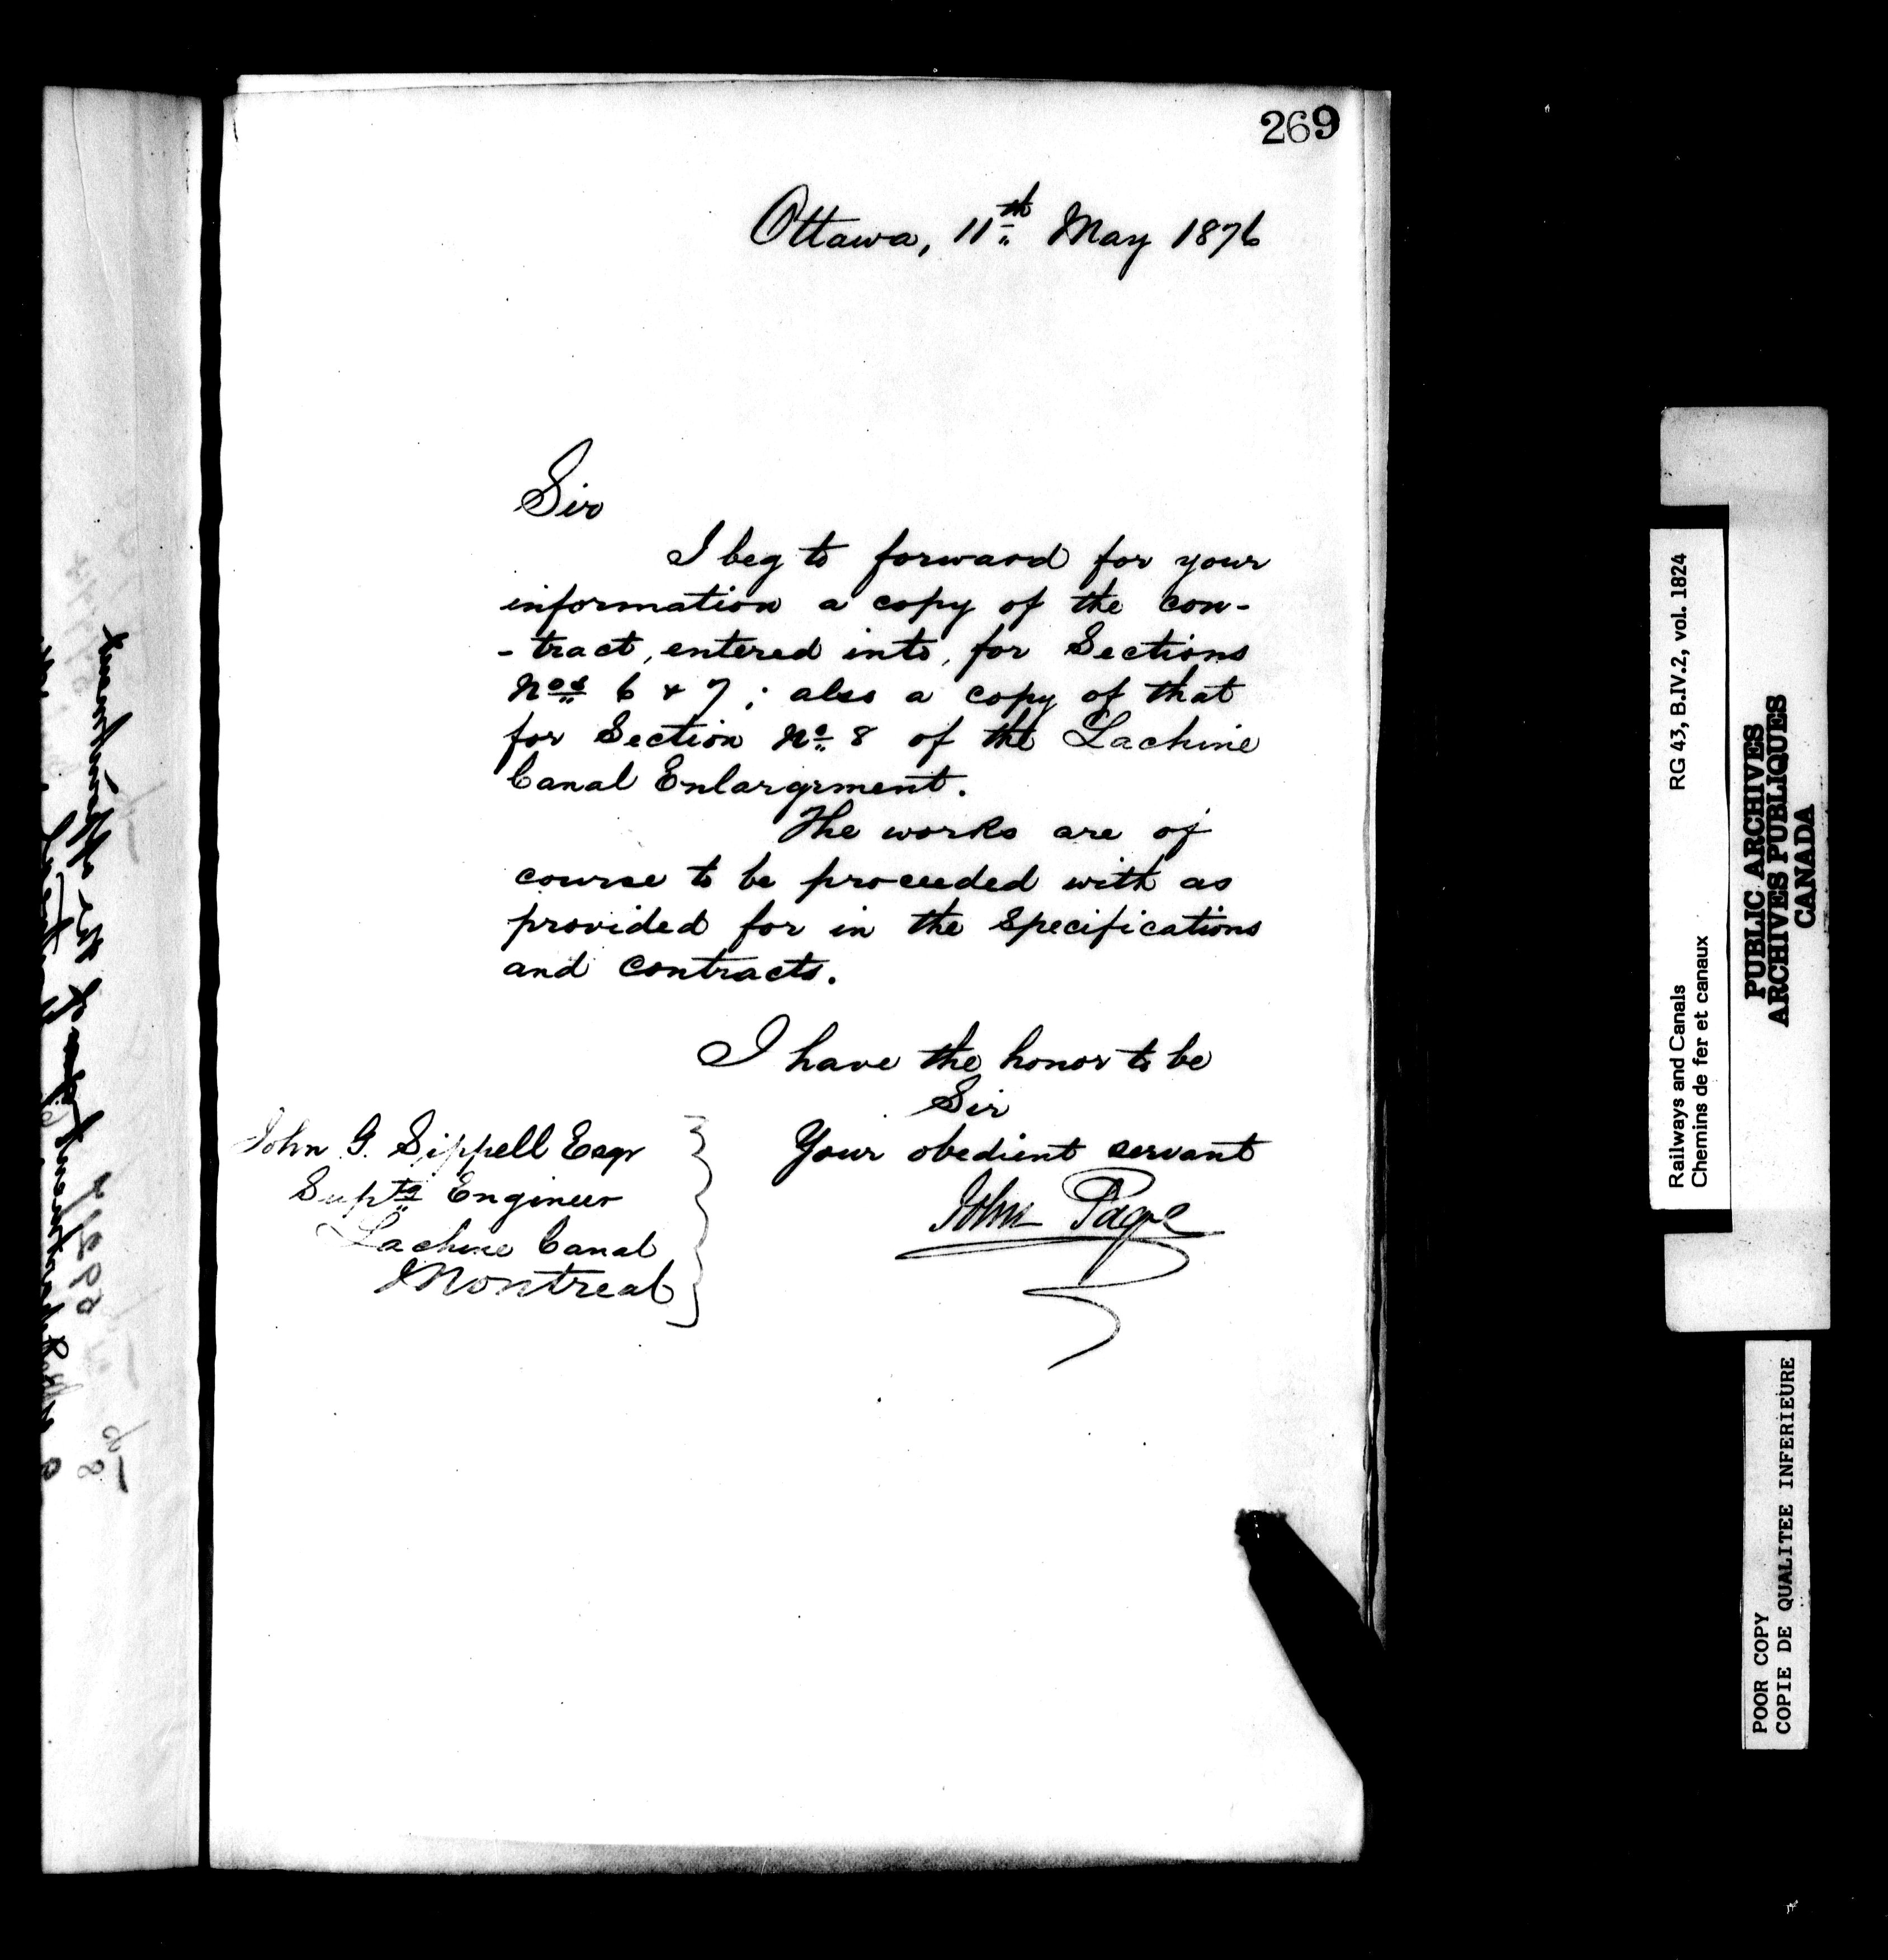 269
Ottawa, 11th May 1876
Sir
I beg to forward for your
information a copy of the con-
- tract, entered into, for Sections
Nos 6 & 7; also a copy of that
for Section No 8 of the Lachine
Canal Enlargement.
The works are of
course to be proceeded with as
provided for in the specifications
and contracts.
I have the honor to be
Sir
Your obedient servant
John Page
John G. Sippell Esqr
Suptg Engineer
Lachine Canal
Montreal
Railways and Canals RG 43, B.IV.2, vol. 1824
Chemins de fer et canaux
PUBLIC ARCHIVES
ARCHIVES PUBLIQUES
CANADA
POOR COPY
COPIE DE QUALITEE INFERIEURE